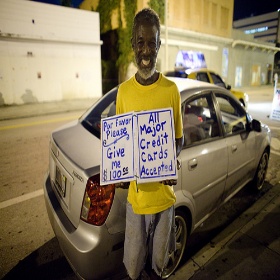 Por Favor
Please,
Give
me
$100.00
All
Major
Credit
Cards
Accepted